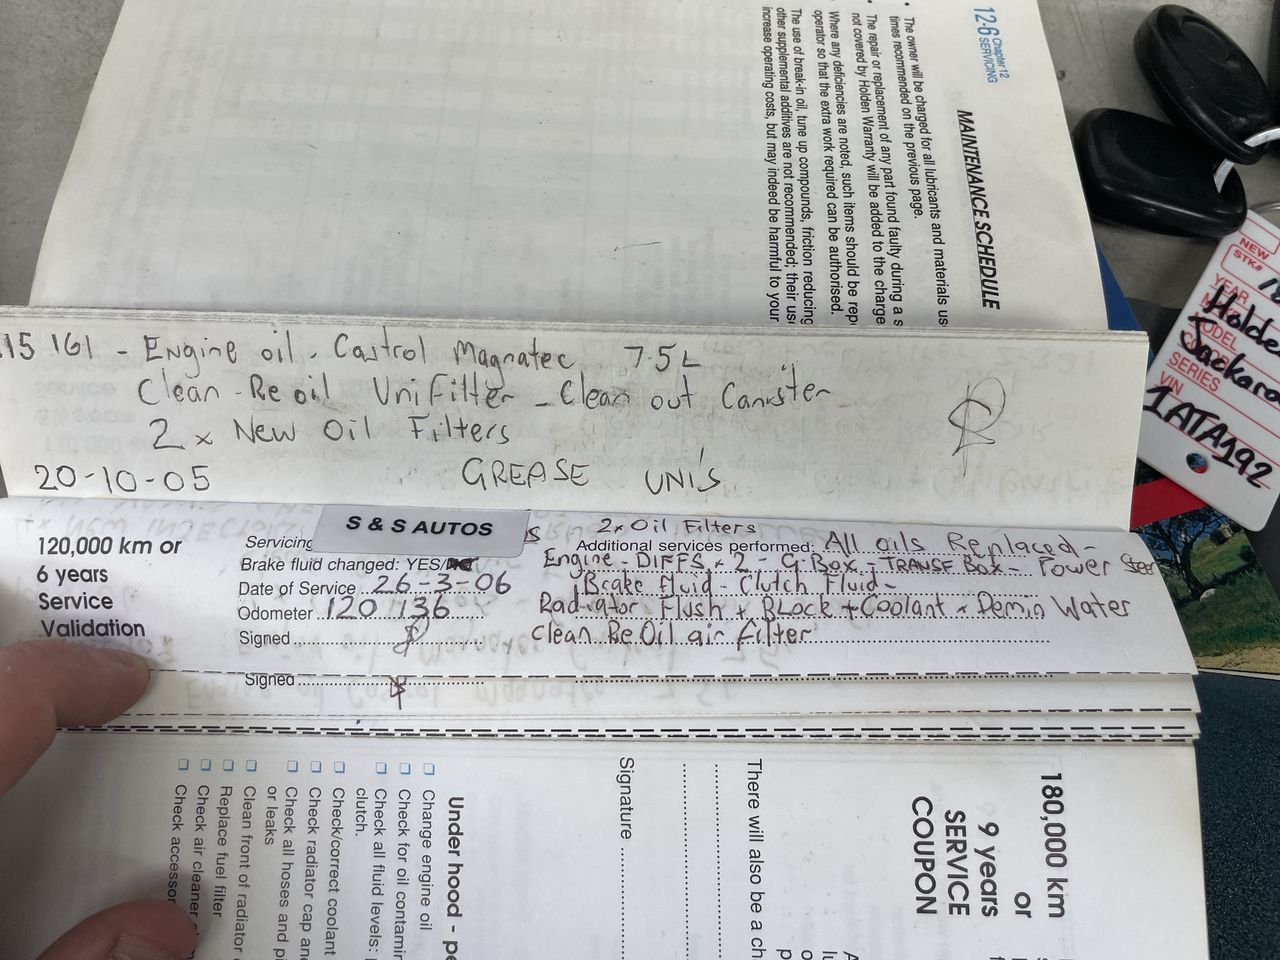 12-6 Chapter 12
SERVICING
MAINTENANCE SCHEDULE
• The owner will be charged for all lubricants and materials us
times recommended on the previous page.
• The repair or replacement of any part found faulty during a s
not covered by Holden Warranty will be added to the charge
Where any deficiencies are noted, such items should be rep
operator so that the extra work required can be authorised.
The use of break-in oil, tune up compounds, friction reducing
other supplemental additives are not recommended; their us
increase operating costs, but may indeed be harmful to your
NEW
STK#
YEAR
Holde
MODEL
Jackaro
SERIES
VIN
1ATA192
15 161 - Engine oil - Castrol Magnatec 7.5L
Clean - Re oil UniFilter - Clean out Canister
2 x New Oil Filters
20-10-05 GREASE UNI'S
S & S AUTOS
120,000 km or
6 years
Service
Validation
Servicing
Brake fluid changed: YES/
Date of Service 26-3-06
Odometer 120 136
Signed
2x Oil Filters
Additional services performed: All oils Replaced -
Engine - DIFFS x 2 - G Box - TRANSF Box - Power Steer
Brake Fluid - Clutch Fluid -
Radiator Flush + Block + Coolant x Demin Water
Clean Re Oil air Filter
Signed
180,000 km
or
9 years
SERVICE
COUPON
There will also be a ch
Signature
Under hood - pe
Change engine oil
Check for oil contamin
Check all fluid levels:
clutch.
Check/correct coolant
Check radiator cap and
Check all hoses and pi
or leaks
Clean front of radiator
Replace fuel filter
Check air cleaner
Check accessor